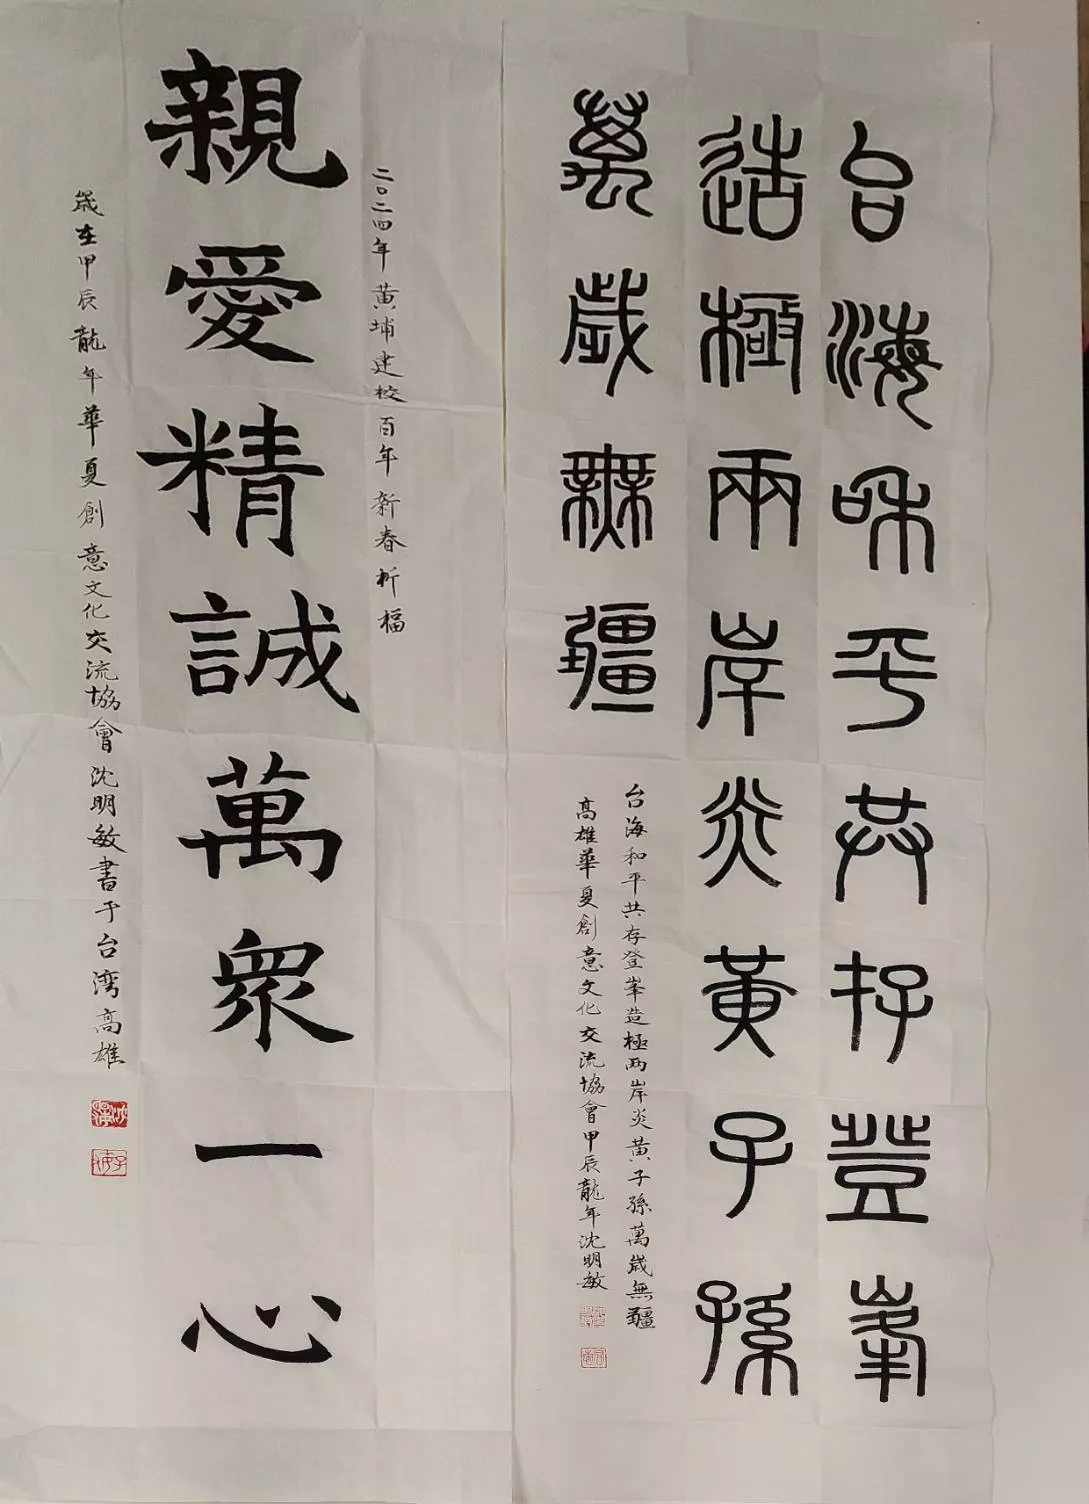 台海和平共存登峯
造極兩岸炎黃子孫
萬歲無疆
台海和平共存登峯造極两岸炎黃子孫萬歲無疆
高雄華夏創意文化交流協會甲辰龍年沈明敏
二〇二四年黃埔建校百年新春祈福
親愛精誠萬眾一心
歲在甲辰龍年華夏創意文化交流協會沈明敏書于台湾高雄